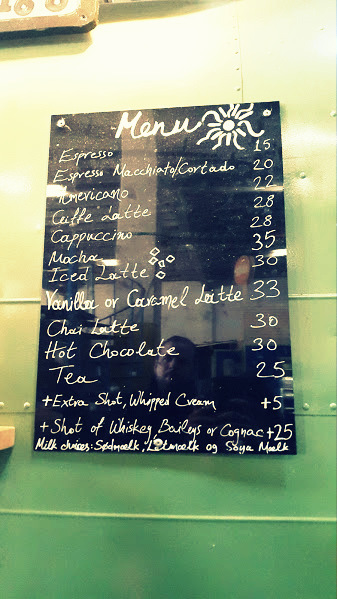 Menu
Espresso 15
Espresso Macchiato/Cortado 20
Americano 22
Caffe Latte 28
Cappuccino 28
Mocha 35
Iced Latte 30
Vanilla or Caramel Latte 33
Chai Latte 30
Hot Chocolate 30
Tea 25
+Extra Shot, Whipped Cream +5
+ Shot of Whiskey Baileys or Cognac +25
Milk choices: Sødmælk, Letmælk og Soya Mælk